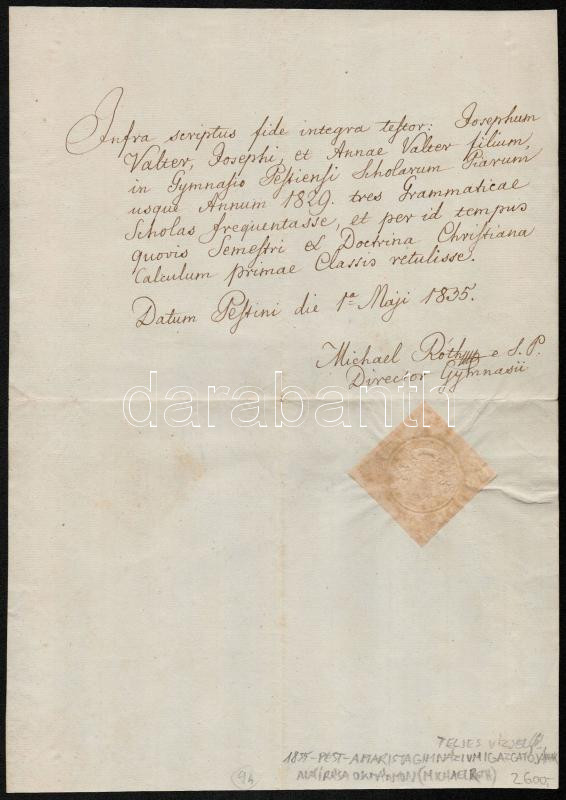 Infra scriptus fide integra testor: Josephum
Valter, Josephi, et Annae Valter filium,
in Gymnasio Pestiensi Scholarum Piarum
usque Annum 1829. tres Grammaticae
Scholas frequentasse, et per id tempus
quovis Semestri ex Doctrina Christiana
Calculum primae Classis retulisse.
Datum Pestini die 1ª Maji 1835.
Michael Róth e S. P.
Director Gymnasii
darabanth
TELJES VÍZJEL
1835 - PEST - A PIARISTA GIMNÁZIUM IGAZGATÓJÁNAK
ALÁÍRÁSA OKMÁNYON (MICHAEL RÓTH)
94
2600,-